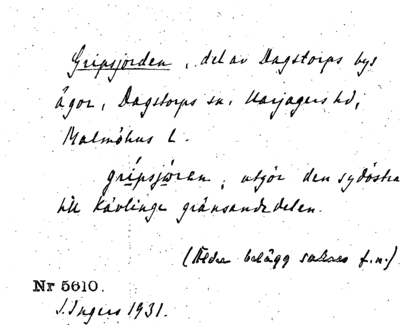 Gripsjorden, del av Dagstorps bys
ägor, Dagstorps sn, Harjagers hd,
Malmöhus l.
gripsjoren, utgör den sydöstra
till Kävlinge gränsande delen.
(Äldre belägg saknas f.n.)
Nr 5610.
J. Ingers 1931.